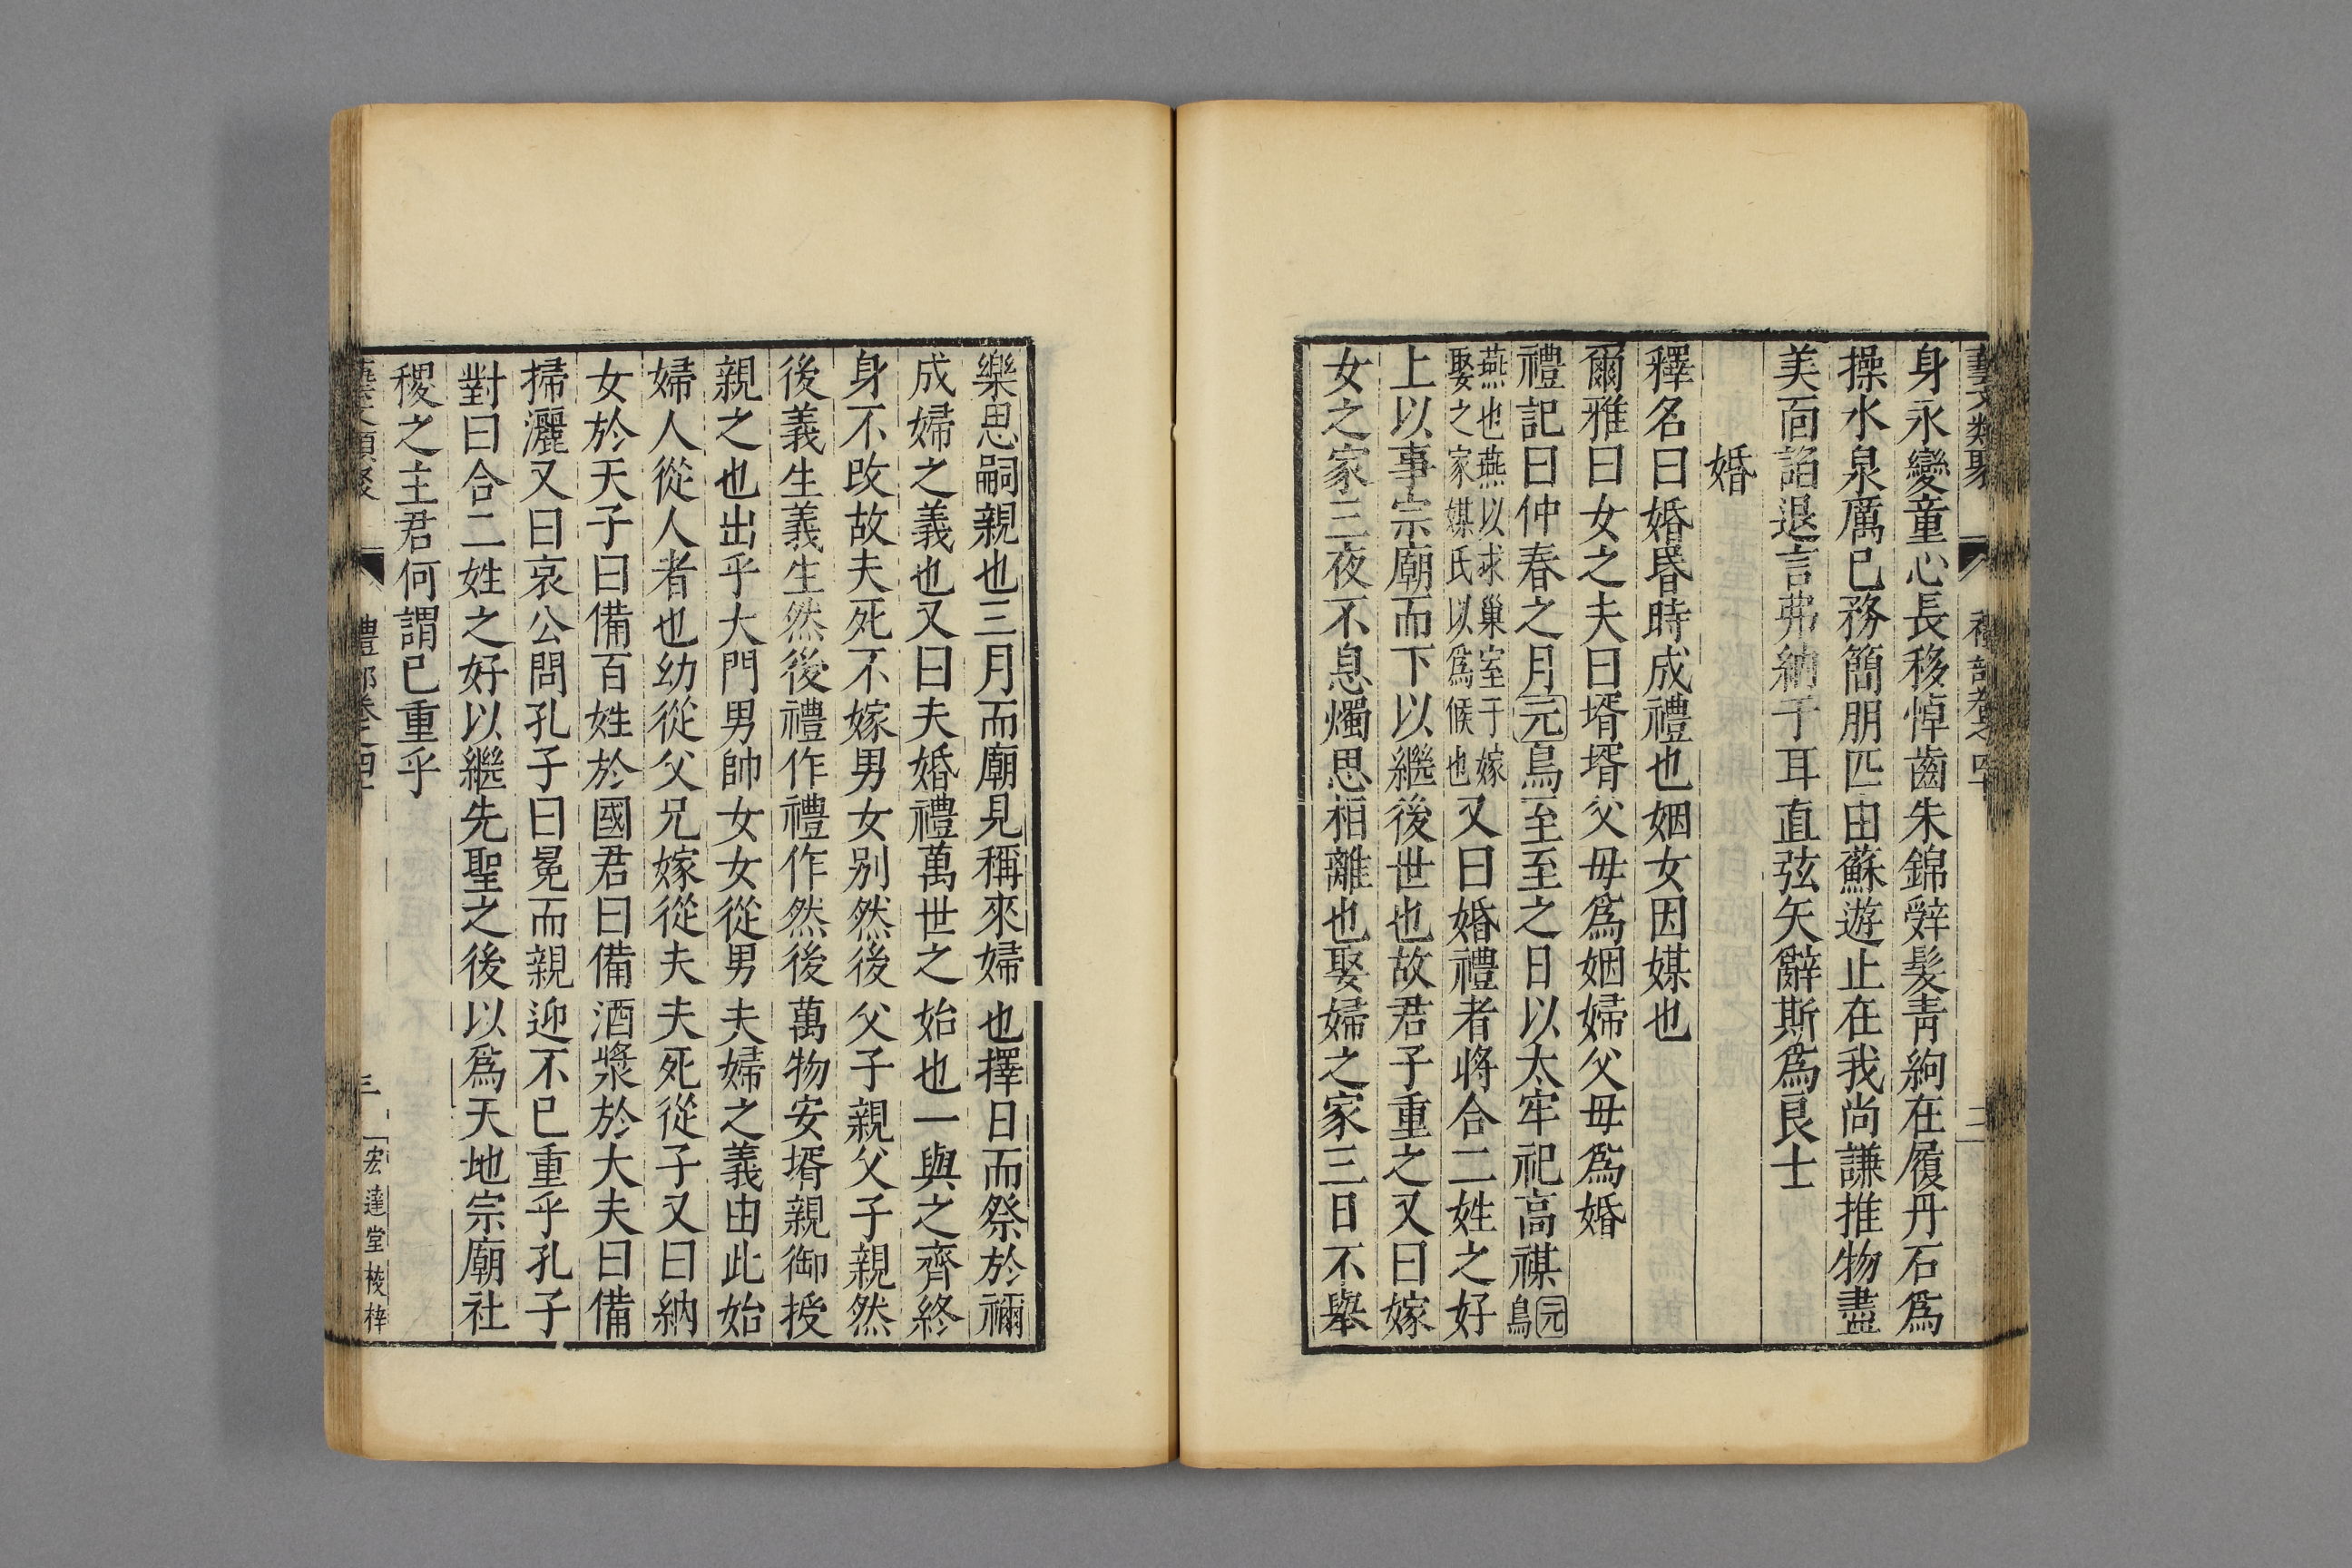 身永變童心長移悼齒朱錦辤髮靑絇在履丹石爲
操水泉厲已務簡朋匹由蘇遊止在我尚謙推物盡
美面諂退言弗納于耳直弦矢辭斯爲良士
婚
釋名曰婚昏時成禮也姻女因媒也
爾雅曰女之夫曰壻壻父母爲姻婦父母爲婚
禮記曰仲春之月元鳥至至之日以太牢祀高禖元鳥
燕也燕以求巢室于嫁娶之家媒氏以爲候也又曰婚禮者將合二姓之好
上以事宗廟而下以繼後世也故君子重之又曰嫁
女之家三夜不息燭思相離也娶婦之家三日不舉
樂思嗣親也三月而廟見稱來婦也擇日而祭於禰
成婦之義也又曰夫婚禮萬世之始也一與之齊終
身不改故夫死不嫁男女別然後父子親父子親然
後義生義生然後禮作禮作然後萬物安壻親御授
親之也出乎大門男帥女女從男夫婦之義由此始
婦人從人者也幼從父兄嫁從夫夫死從子又曰納
女於天子曰備百姓於國君曰備酒漿於大夫曰備
掃灑又曰哀公問孔子曰冕而親迎不已重乎孔子
對曰合二姓之好以繼先聖之後以爲天地宗廟社
稷之主君何謂已重乎
宏達堂校梓